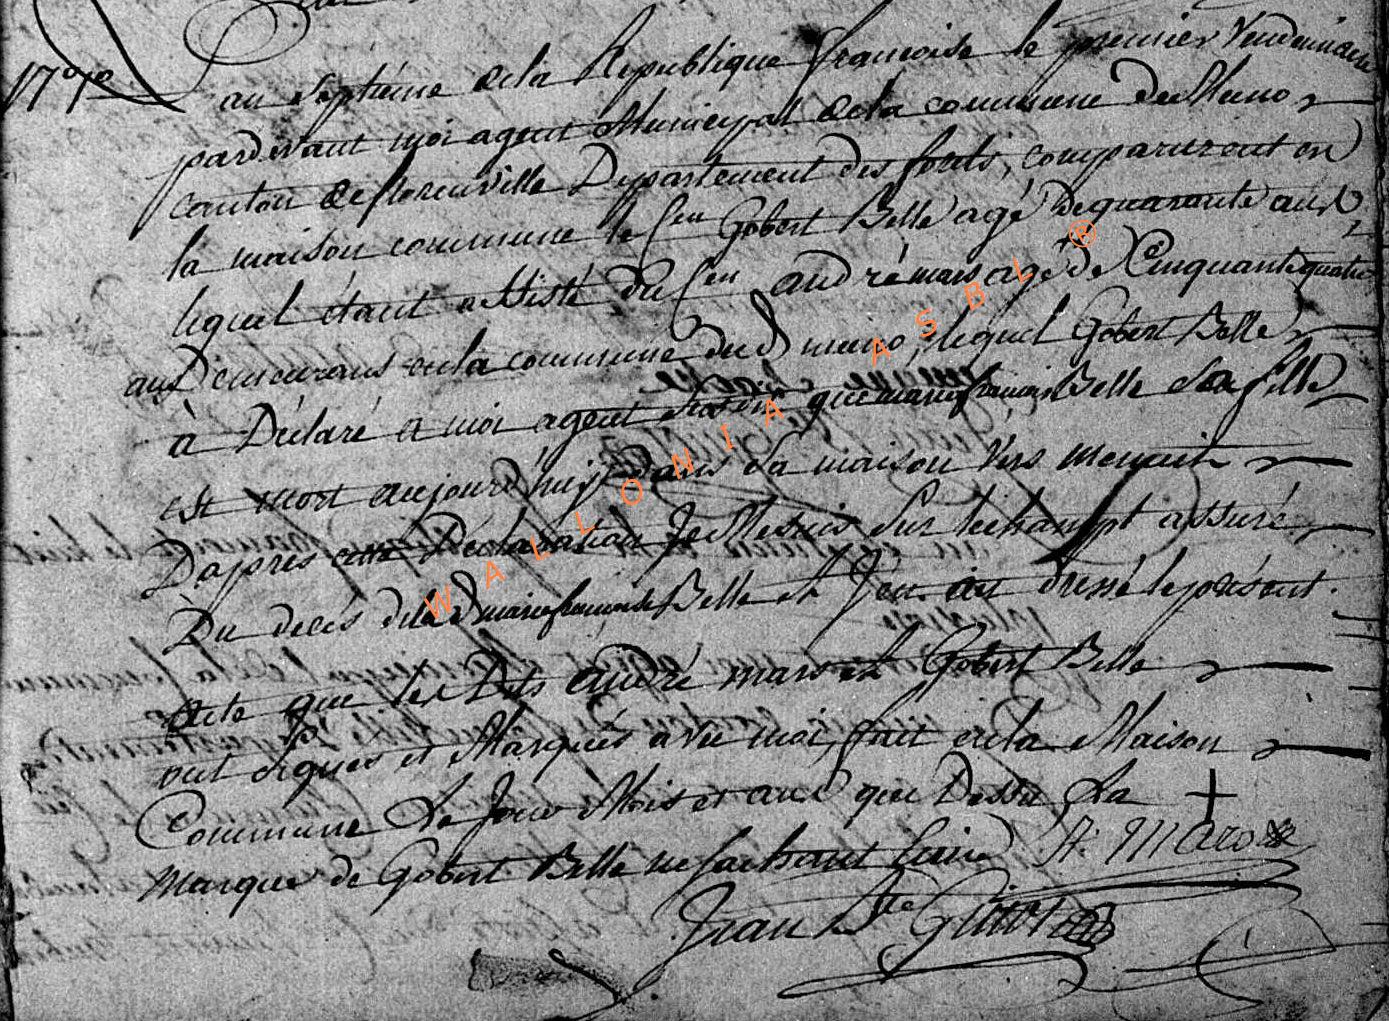 1798
an septiéme de la Republique francoise le premier Vendemiaire
pardevant moi agent Municipal de la commune de Muno
canton de florenville Departement des forêts, comparurent en
la maison commune le Cen Gobert Belle agé de quarante ans
lequel étant assisté du Cen andré mars agé de Cinquante quatre
ans Demeurans en la commune dud muno, lequel Gobert Belle
à Déclaré a moi agent que marie francoise Belle Sa fille
est mort aujourd'huij dans sa maison vers
Dapres cette Déclaration Je Me suis sur le champt assuré
Du deces de lad marie francoise Belle et J'en ai dressé le présent
acte que les Dits andré mars et Gobert Belle
ont signés et Marqués avec moi, fait en la Maison
Commune Le Jour Mois et ans que Dessu La +
Marque de Gobert Belle ne sachant Ecrire A. Maro
Jean Bte
WALLONIA ASBL ®